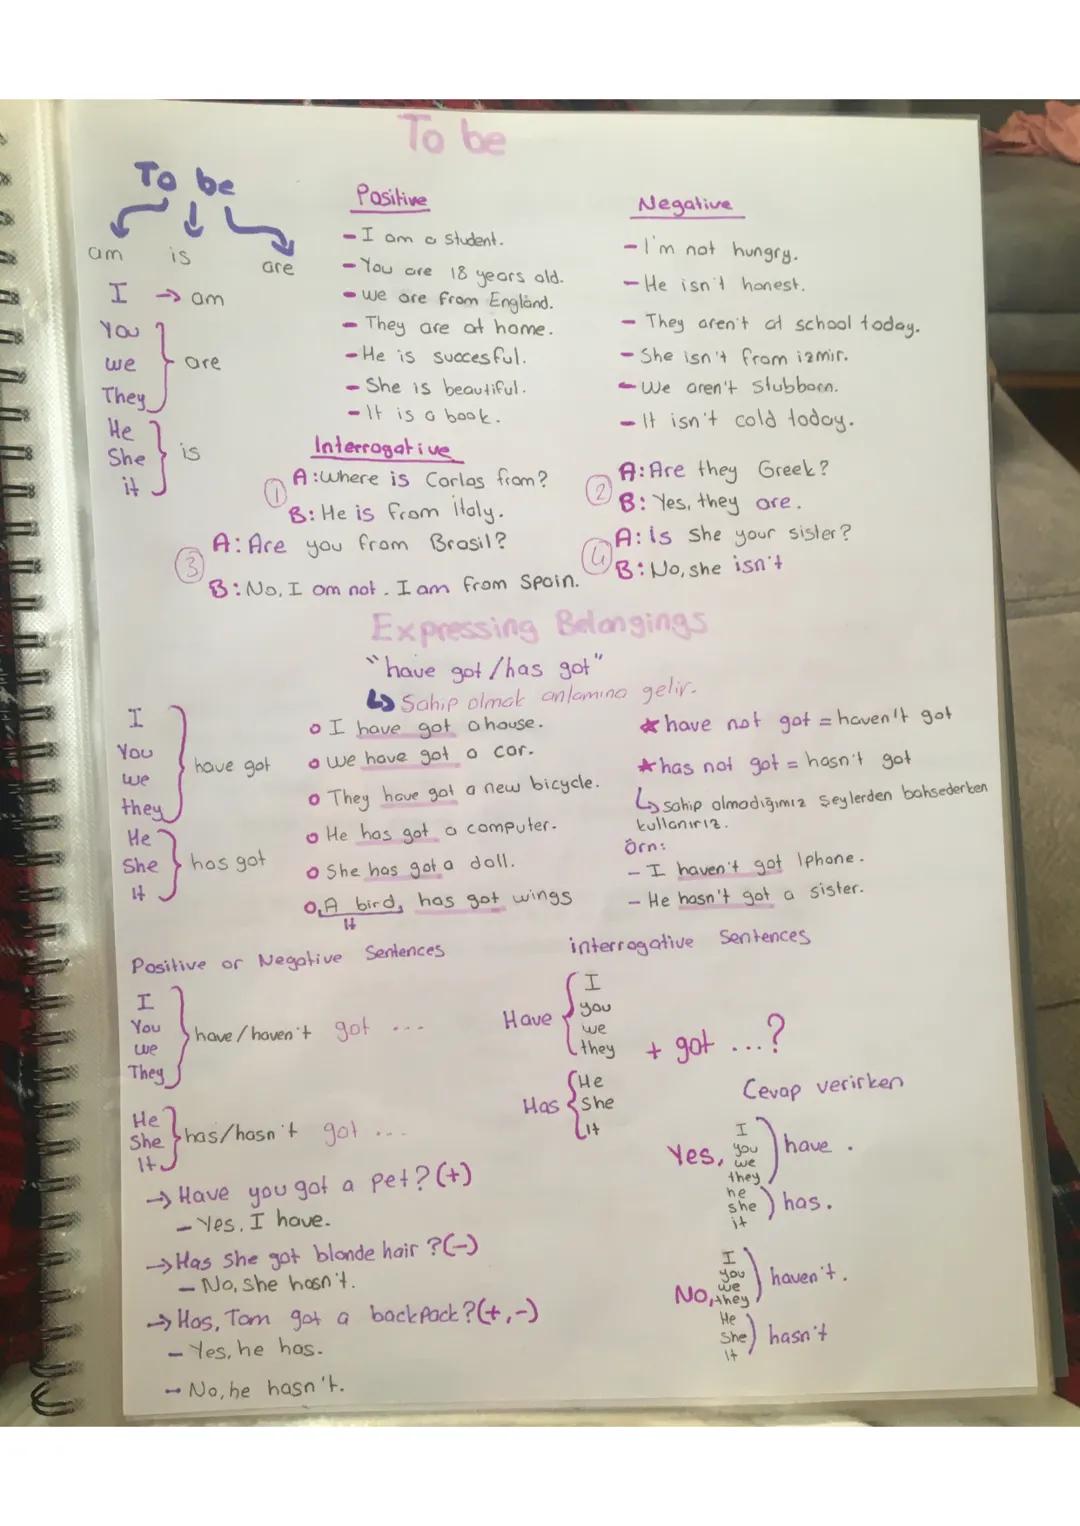 To be
To be
am is are
I → am
You
we
They
are
He
She
it
is
Positive
- I am a student.
- You are 18 years old.
- we are from England.
- They are at home.
- He is succesful.
- She is beautiful.
- It is a book.
Negative
- I'm not hungry.
- He isn't honest.
- They aren't at school today.
- She isn't from izmir.
- We aren't stubborn.
- It isn't cold today.
Interrogative
1 A: Where is Carlos from?
B: He is from italy.
2 A: Are they Greek?
B: Yes, they are.
3 A: Are you from Brasil?
B: No, I am not. I am from Spain.
4 A: is she your sister?
B: No, she isn't
Expressing Belongings
"have got / has got"
↳ Sahip olmak anlamına gelir.
I
You
we
they
have got
He
She
It
has got
o I have got a house.
o we have got a car.
o They have got a new bicycle.
o He has got a computer.
o She has got a doll.
o A bird, has got wings
It
★ have not got = haven't got
★ has not got = hasn't got
↳ sahip olmadığımız şeylerden bahsederken
kullanırız.
Örn:
- I haven't got Iphone.
- He hasn't got a sister.
Positive or Negative Sentences
I
You
we
They
have / haven't got ...
He
She
It
has/hasn't got ...
→ Have you got a pet? (+)
- Yes, I have.
→ Has she got blonde hair? (-)
- No, she hasn't.
→ Has, Tom got a backpack? (+,-)
- Yes, he has.
- No, he hasn't.
interrogative Sentences
Have
I
you
we
they
Has
He
She
It
+ got ...?
Cevap verirken
Yes,
I
you
we
they
have.
he
she
it
has.
No,
I
you
we
they
haven't.
He
She
It
hasn't